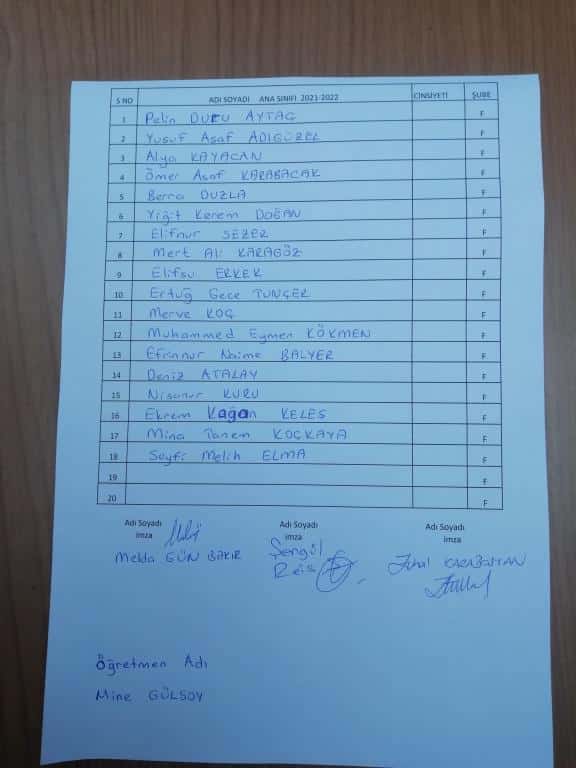 S NO ADI SOYADI ANA SINIFI 2021-2022 CİNSİYETİ ŞUBE
1 Pelin DURU AYTAÇ F
2 Yusuf Asaf ADIGÜZEL F
3 Alya KAYACAN F
4 Ömer Asaf KARABACAK F
5 Berra DUZLA F
6 Yiğit Kerem DOĞAN F
7 Elifnur SEZER F
8 Mert Ali KARAGÖZ F
9 Elifsu ERKEK F
10 Ertuğ Gece TUNÇER F
11 Merve KOÇ F
12 Muhammed Eymen KÖKMEN F
13 Efrinnur Naime BALYER F
14 Deniz ATALAY F
15 Nisanur KURU F
16 Ekrem Kağan KELEŞ F
17 Mina KOÇKAYA F
18 Seyfi Melih ELMA F
19 F
20 F
Adı Soyadı Adı Soyadı Adı Soyadı
imza imza imza
Melda GÜN BAKIR Şengül
Reis
Öğretmen Adı
Mine GÜLSOY